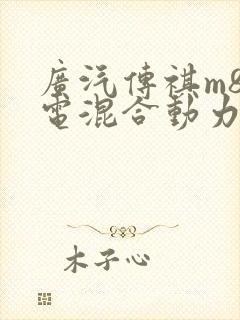 廣汽傳祺m8
電混合動力
木子心